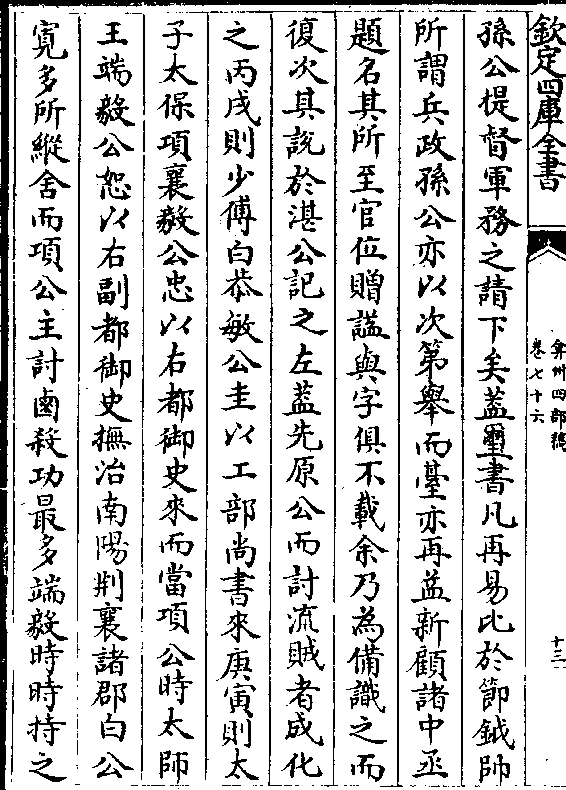 欽定四庫全書
弇州四部稿
卷七十六
十三
孫公提督軍務之請下矣蓋璽書凡再易比於節鉞帥
所謂兵政孫公亦以次第舉而臺亦再益新顧諸中丞
題名其所至官位贈諡與字俱不載余乃為備識之而
復次其說於湛公記之左蓋先原公而討流賊者成化
之丙戌則少傅白恭敏公圭以工部尚書來庚寅則太
子太保項襄毅公忠以右都御史來而當項公時太師
王端毅公恕以右副都御史撫治南陽荆襄諸郡白公
寛多所縱舍而項公主討鹵殺功最多端毅時時持之